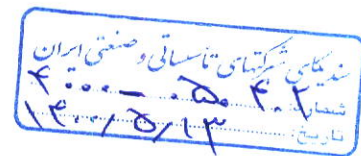 سندیکای شرکتهای تأسیساتی و صنعتی ایران
شماره: ۴۰۰۰-۰۵۰۴۰۲
تاریخ: ۱۴۰۰/۵/۱۳